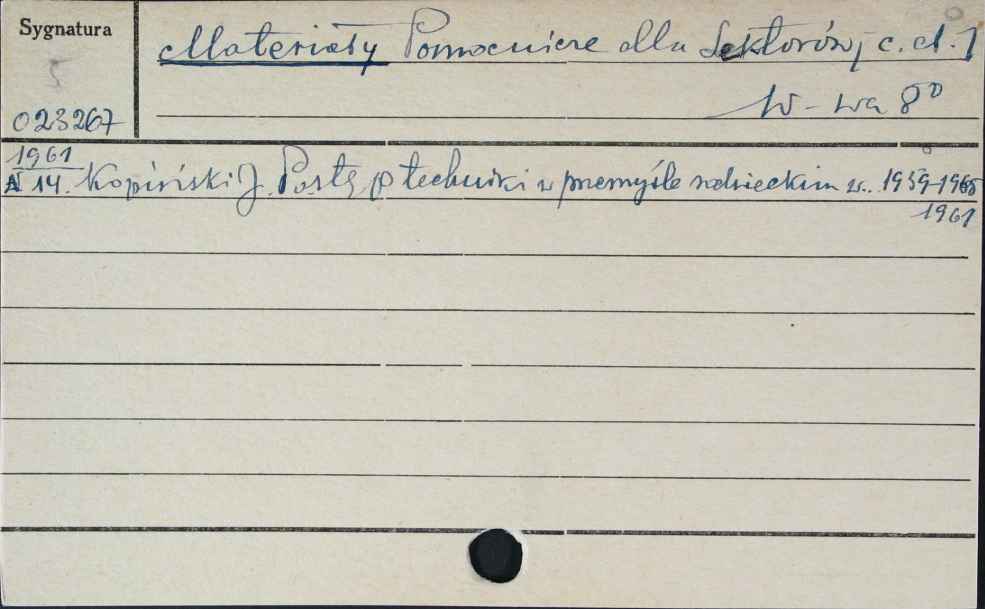 Sygnatura
5
023267
Materiały Pomocnicze dla Lektorów, c.d. 1
W-wa 8°
1961
14. Kopiński J. Postęp techniki w przemyśle radzieckim w.. 1959-1965
1961